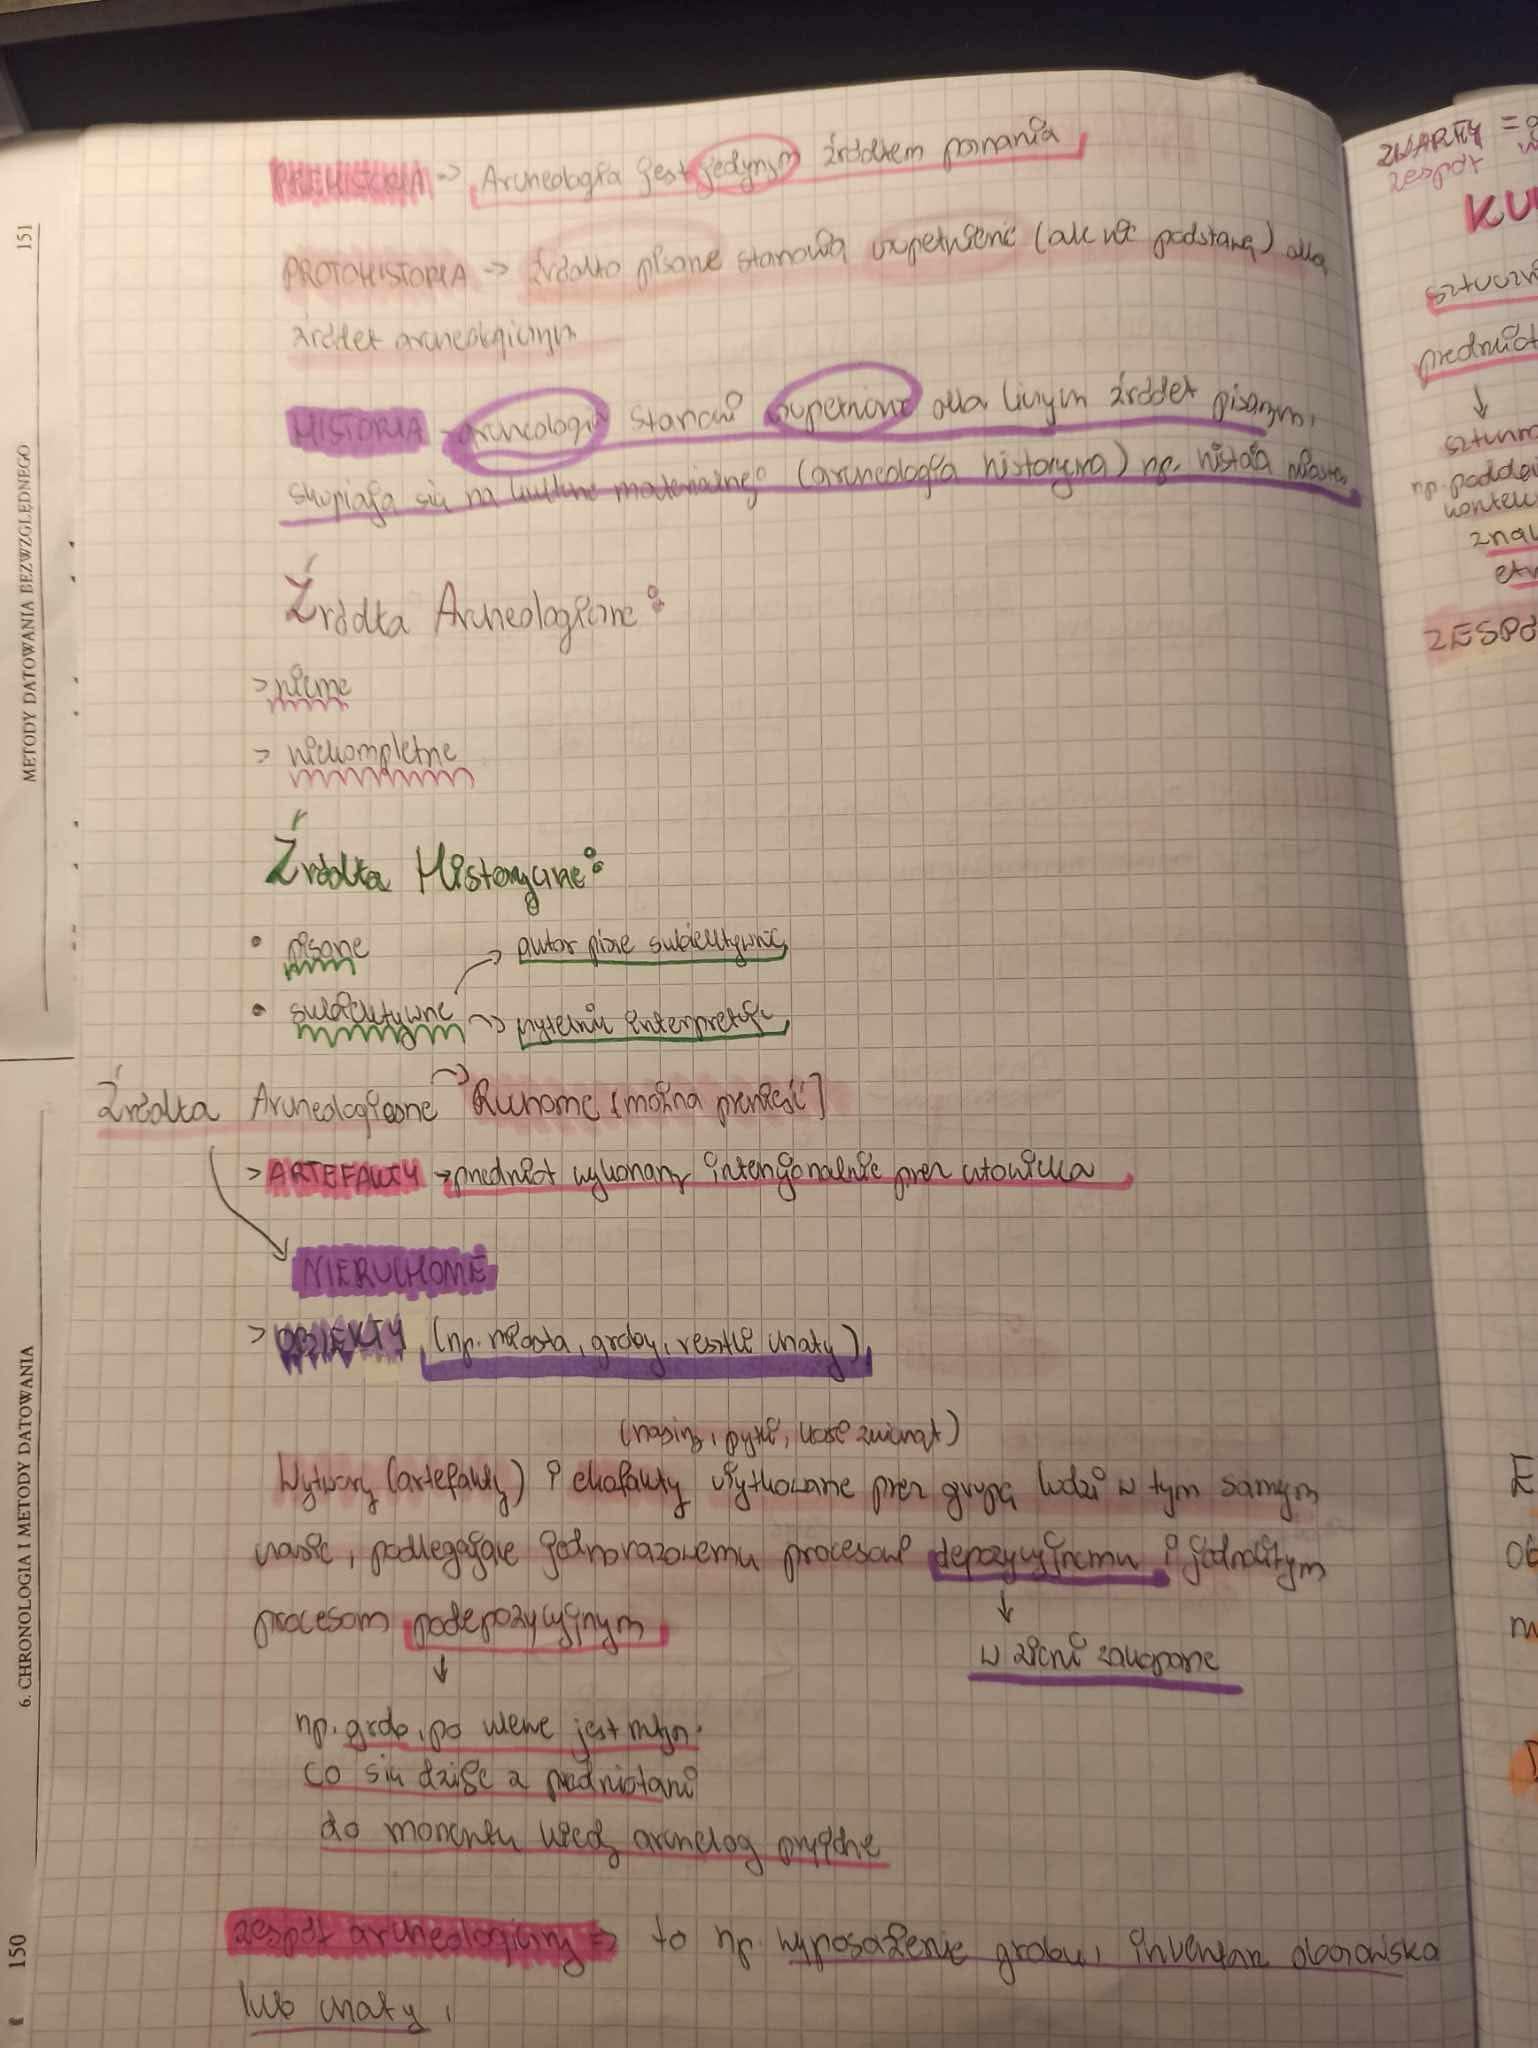 PREHISTORIA -> Archeologia jest jedynym źródłem poznania
PROTOHISTORIA -> źródło pisane stanowią uzupełnienie (ale nie podstawę) dla
źródeł archeologicznych
HISTORIA - archeologia stanowi uzupełnienie dla licznych źródeł pisanych,
skupiają się na kulturze materialnej (archeologia historyczna) np. historia miasta
Źródła Archeologiczne:
> nieme
> niekompletne
Źródła Historyczne:
• pisane
-> autor pisze subiektywnie
• subiektywne -> czytelnik interpretuje
Źródła Archeologiczne -> Ruchome (można przenieść]
> ARTEFAKTY -> przedmiot wykonany intencjonalnie przez człowieka
NIERUCHOME
> OBIEKTY (np. miasta, groby, resztki chaty)
(nasiona, pyłki, kości zwierząt)
Wytwory (artefakty) i ekofakty użytkowane przez grupę ludzi w tym samym
czasie, podlegające jednorazowemu procesowi depozycyjnemu i jednolitym
procesom podepozycyjnym
↓
w ziemi zakopane
↓
np. grób, po wieku jest młyn.
co się dzieje z przedmiotami
do momentu kiedy archeolog przyjdzie
zespół archeologiczny => to np. wyposażenie grobu, inwentarz obozowiska
lub chaty,
METODY DATOWANIA BEZWZGLĘDNEGO
151
6. CHRONOLOGIA I METODY DATOWANIA
150
ZWARTY =
zespół
KU
przedmiot
↓
np.